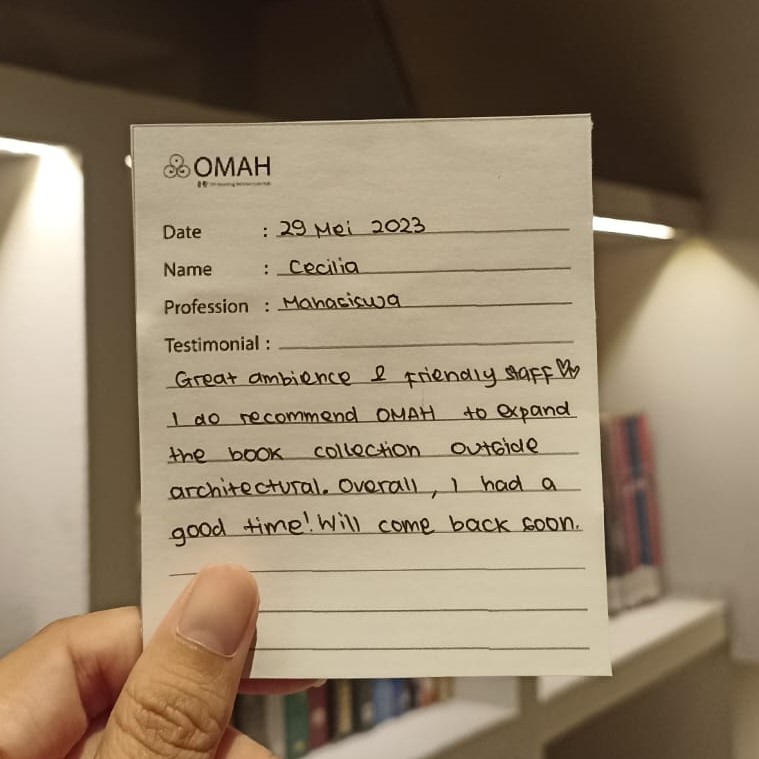 OMAH
Date : 29 Mei 2023
Name : Cecilia
Profession : Mahasiswa
Testimonial :
Great ambience & friendly staff
I do recommend OMAH to expand
the book collection outside
architectural. Overall, I had a
good time! Will come back soon.